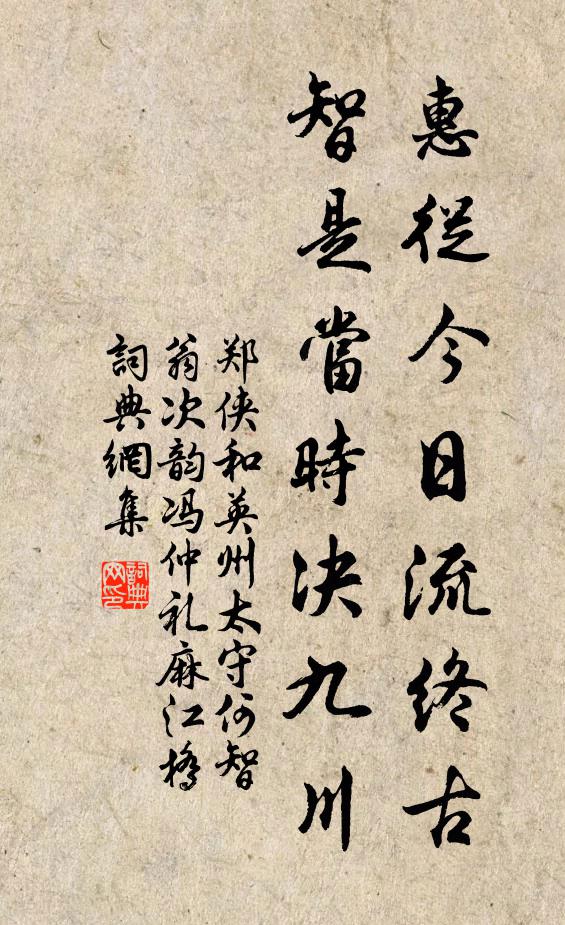 惠從今日流終古
智是當時決九川
郑侠和英州太守何智
翁次韵冯仲礼麻江橋
詞典網集
詞典
网印